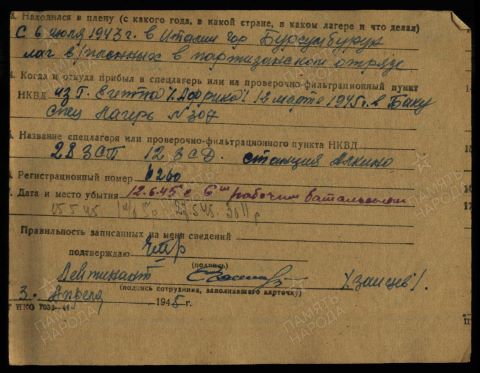 Находился в плену (с какого года, в какой стране, в каком лагере и что делал)
С 6 июля 1943 г. в Италии гор.
лаг в/пленных в партизанском отряде
Когда и откуда прибыл в спецлагерь или на проверочно-фильтрационный пункт
НКВД из Г. Египта /Африка/ 12 марта 1945 г. в Баку
Спец Лагерь № 307
Название спецлагеря или проверочно-фильтрационного пункта НКВД
28 ЗСП 12 ЗСД. станция Алкино
Регистрационный номер 6260
Дата и место убытия 12.6.45 с 6ым рабочим батальоном
15.5.45
Правильность записанных на меня сведений
подтверждаю
(подпись)
Лейтинант /Зайцев/.
(подпись сотрудника, заполнявшего карточку)
3. Апреля 1945 г.
НКО
ПАМЯТЬ НАРОДА